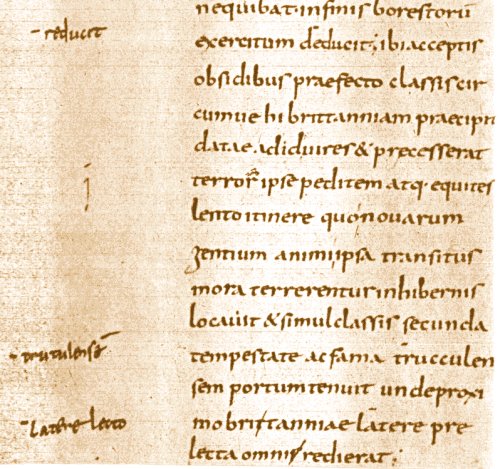 nequibat. in finis borestorū
- reducit
exercitum deducit; ibi acceptis
obsidibus praefecto classis cir
cumuehi brittanniam praecipit
datae ad id uires & precesserat
terror ipse peditem atq. equites
lento itinere quo nouarum
gentium animi ipsa transitus
mora terrerentur in hibernis
locauit & simul classis secunda
- trutulensē
tempestate ac fama trucculen
sem portum tenuit unde proxi
- latere lecto
mo brittanniae latere pre
lecta omni redierat;